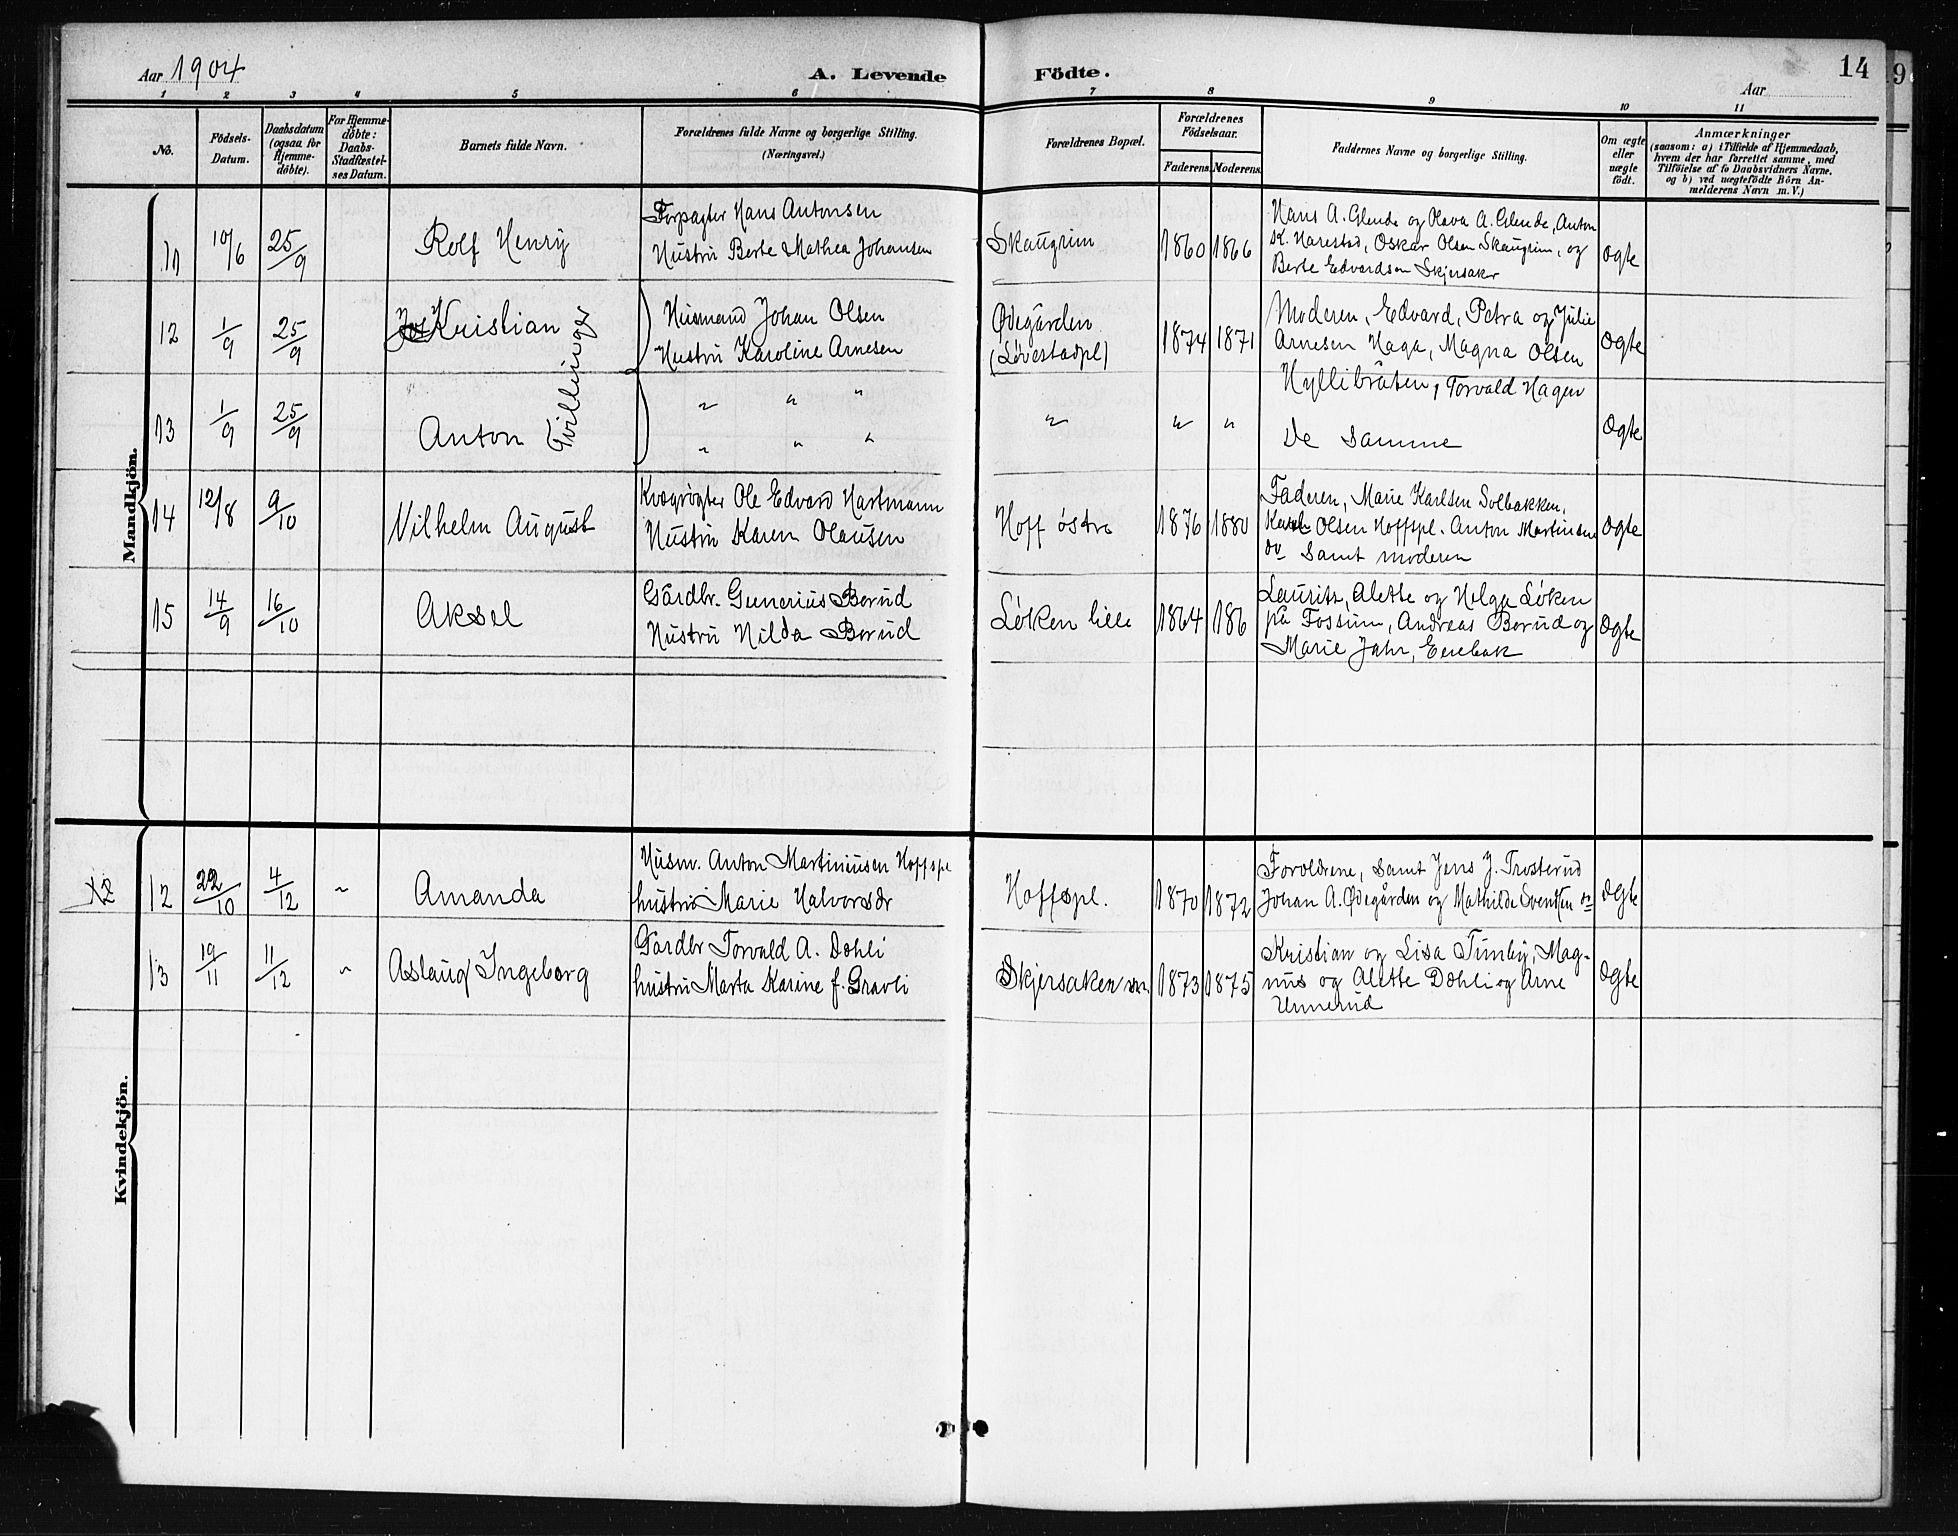 Aar 1904 A. Levende Födte. Aar 14
1 2 3 4 5 6 7 8 9 10 11
No.
Födsels-
Datum.
Daabsdatum
(ogsaa for
Hjemme-
döbte).
For Hjemme-
döbte:
Daabs-
Stadfæstel-
ses Datum.
Barnets fulde Navn.
Forældrenes fulde Navne og borgerlige Stilling.
(Næringsvei.)
Forældrenes Bopæl.
Forældrenes
Födselsaar.
Faderens. Moderens.
Faddernes Navne og borgerlige Stilling.
Om ægte
eller
uægte
födt.
Anmærkninger
(saasom: a) i Tilfælde af Hjemmedaab,
hvem der har forrettet samme, med
Tilföielse af to Daabsvidners Navne,
og b) ved uægtefödte Börn An-
melderens Navn m. V.)
Mandkjön.
11 10/6 25/9 Rolf Henry
Forpagter Hans Antonsen
Hustru Berte Mathea Johansen
Skaugrim 1860 1866
Hans A. Glende og Olava A. Glende, Anton
K. Harestad, Oskar Olsen Skaugrim, og
Berte Edvardsen Skjersaker
Ogte
12 1/9 25/9 Kristian
Tvillinger
Husmand Johan Olsen
Hustru Karoline Arnesen
Ødegården
(Løvestadpl)
1874 1871
Moderen, Edvard, Petra og Julie
Arnesen Haga, Magna Olsen
Hyllibråten, Torvald Hagen
Ogte
13 1/9 25/9 Anton
" " "
" " "
" " "
De Samme
Ogte
14 12/8 9/10 Vilhelm August
Kvægrøgter Ole Edvard Hartmann
Hustru Karen Olausen
Hoff østre 1876 1880
Faderen, Marie Karlsen Solbakken,
Karl Olsen Hoffspl. Anton Martinsen
do Samt moderen
Ogte
15 14/9 16/10 Aksel
Gårdbr. Gunerius Borud
Hustru Hilda Borud
Løken lille 1864 186
Laurits, Alette og Helga Løken
på Fossum, Andreas Borud og
Marie Jahr, Enebak
Ogte
Kvindekjön.
12 22/10 4/12 " Amanda
Husm. Anton Martiniusen Hoffspl
hustru Marie Halvorsdr
Hoffspl. 1870 1872
Foroldrene, samt Jens J. Trosterud
Johan A. Ødegården og Mathilde Svendsen do
Ogte
13 19/11 11/12 " Aslaug Ingeborg
Gårdbr Torvald A. Dohli
hustru Marta Karine f. Gravli
Skjersaken 1873 1875
Kristian og Lisa Timby, Mag-
nus og Alette Dohli og Arne
Unnerud
Ogte